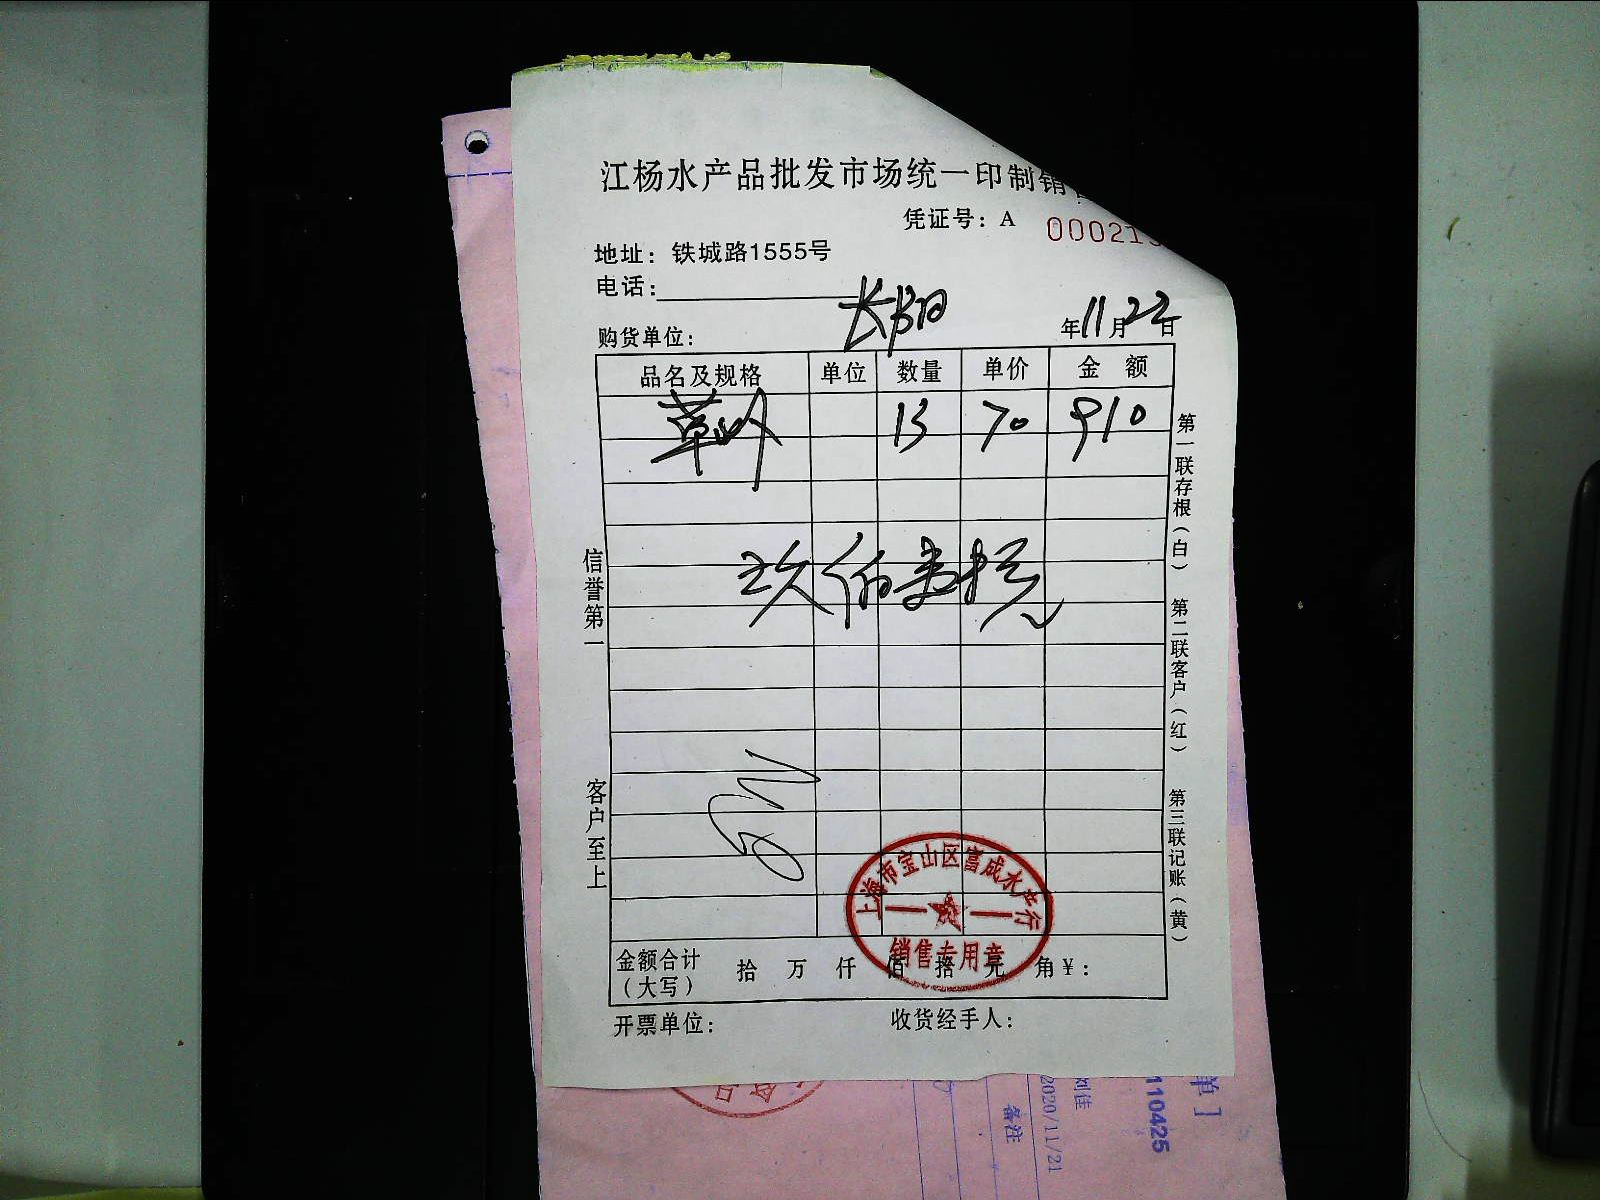 江杨水产品批发市场统一印制销
凭证号：A 00021
地址：铁城路1555号
电话：
长阳
购货单位：
年11月22日
品名及规格 单位 数量 单价 金 额
草虾 13 70 910
玖佰壹拾元
信誉第一
客户至上
第一联存根（白）
第二联客户（红）
第三联记账（黄）
上海市宝山区富成水产行
销售专用章
金额合计（大写） 拾 万 仟 佰 拾 元 角 ¥：
开票单位：
收货经手人：
单]
110425
刘佳
2020/11/21
备注